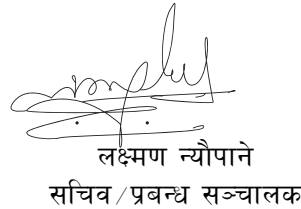 लक्ष्मण न्यौपाने
सचिव/प्रबन्ध सञ्चालक